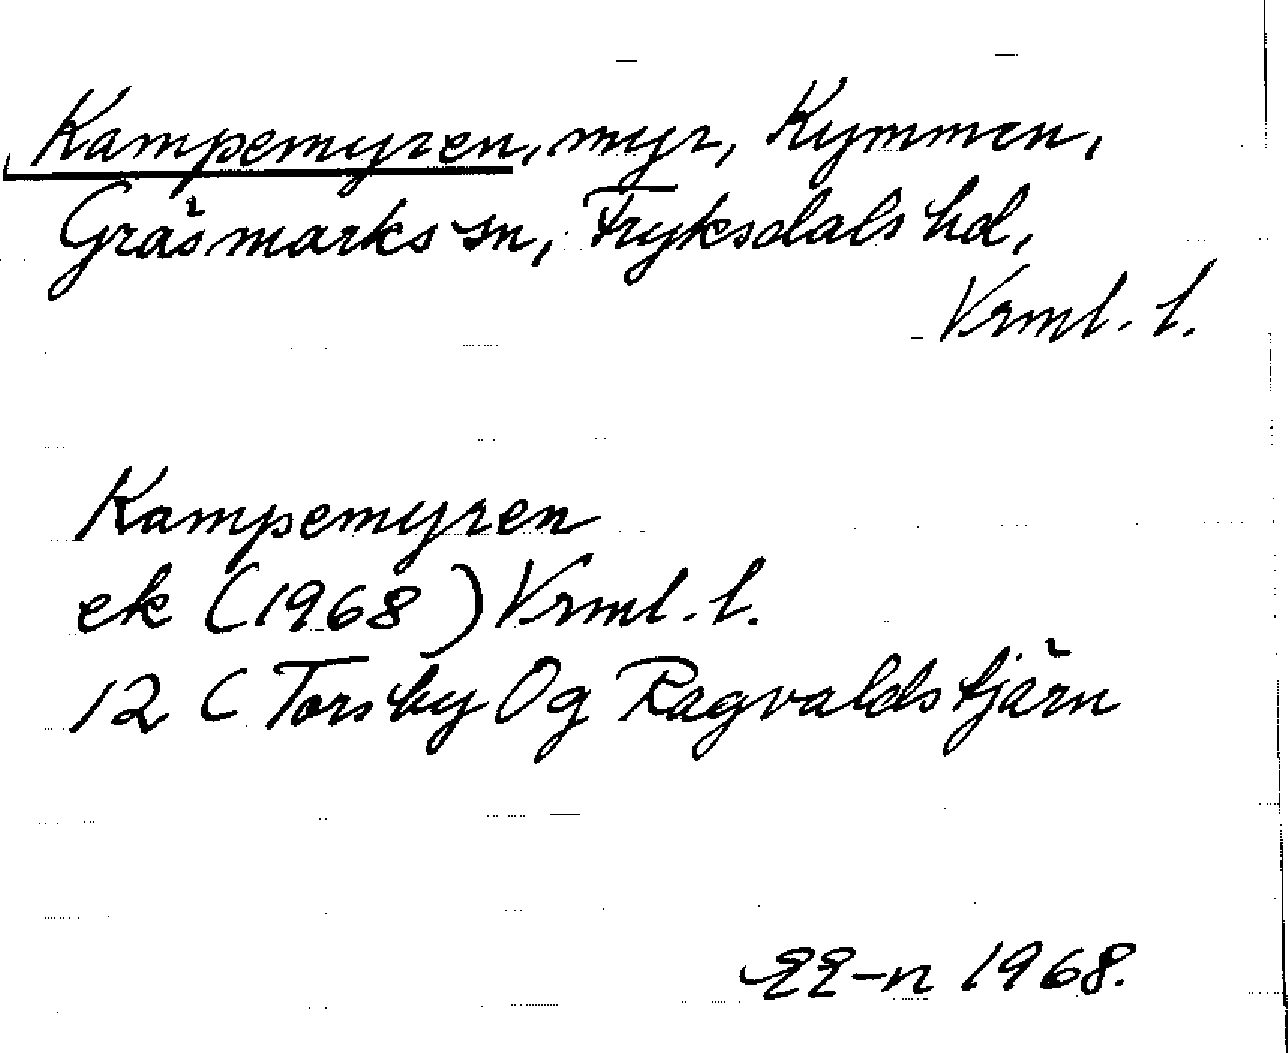 Kampemyren, myr, Kymmen,
Gräsmarks sn, Fryksdals hd,
Vrml. l.
Kampemyren
ek (1968) Vrml. l.
12 C Torsby Og Ragvaldstjärn
EE-n 1968.